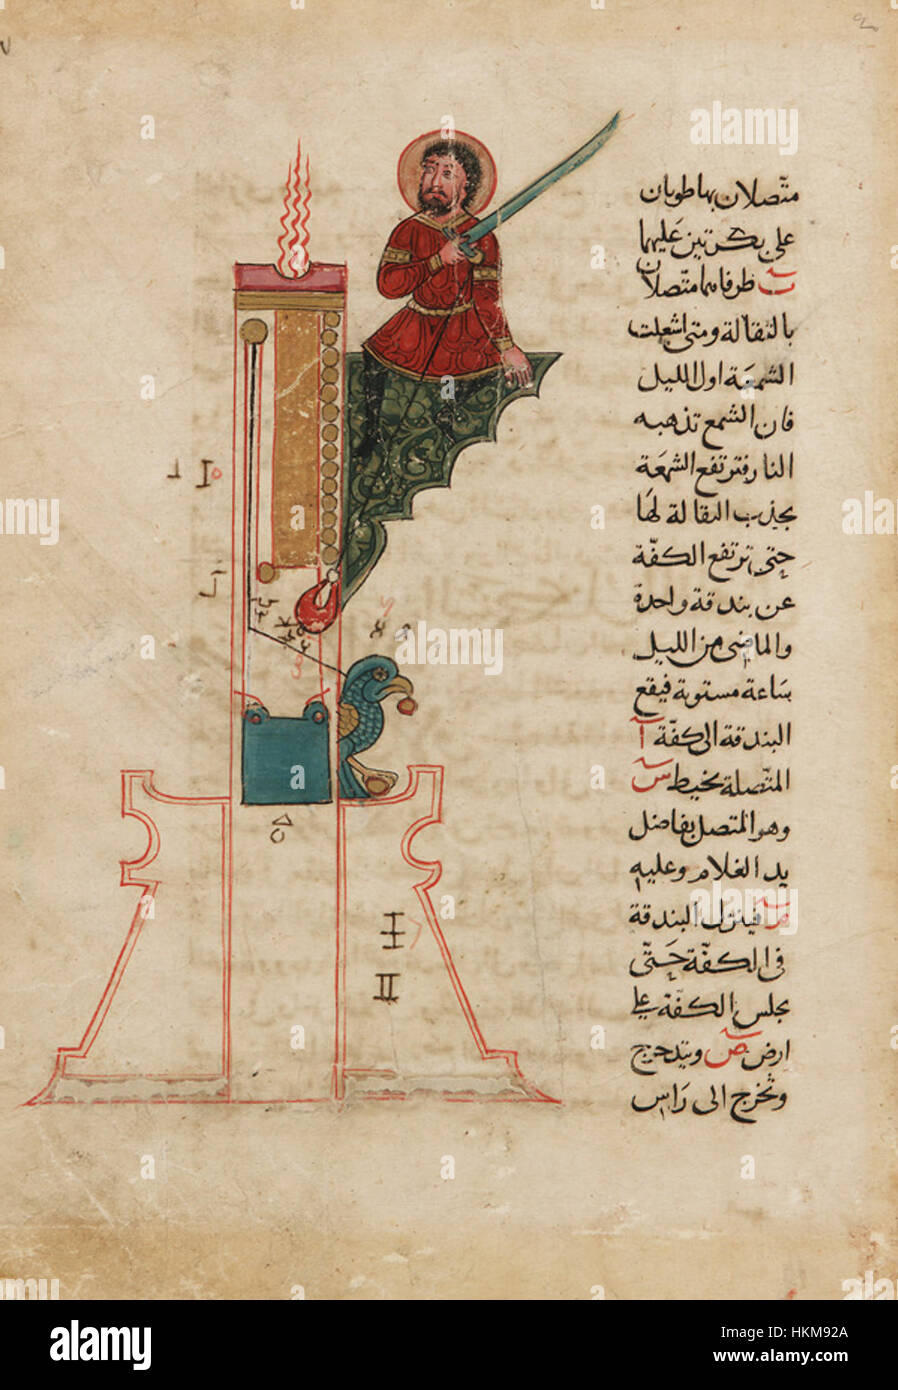 متصلان بهاطوبان
على بكرتين عليهما
ب طرفاهما متصلان
بالثقالة ومتى اشعلت
الشمعة اول الليل
فان الشمع تذهبه
النار فترتفع الشمعة
بجذب الثقالة لها
حتى ترتفع الكفة
عن بندقة واحدة
والماضى من الليل
ساعة مستوية فيقع
البندقة الى كفة آ
المتصلة بخيط س
وهو المتصل بفاضل
يد الغلام وعليه
فينزل البندقة
فى الكفة حتى
يجلس الكفة على
ارض ص ويتدحرج
وتخرج الى راس
alamy
Image ID: HKM92A
www.alamy.com